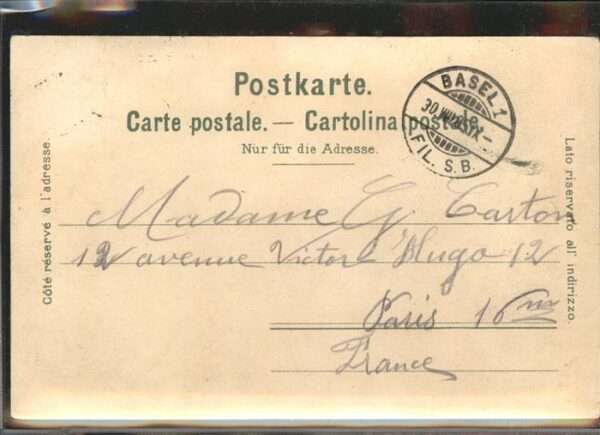 Postkarte.
Carte postale. — Cartolina postale.
Nur für die Adresse.
BASEL 1
FIL. S.B.
Côté réservé à l'adresse.
Lato riservato all' indirizzo.
Madame G. Carton
12 avenue Victor Hugo 12
Paris 16me
France